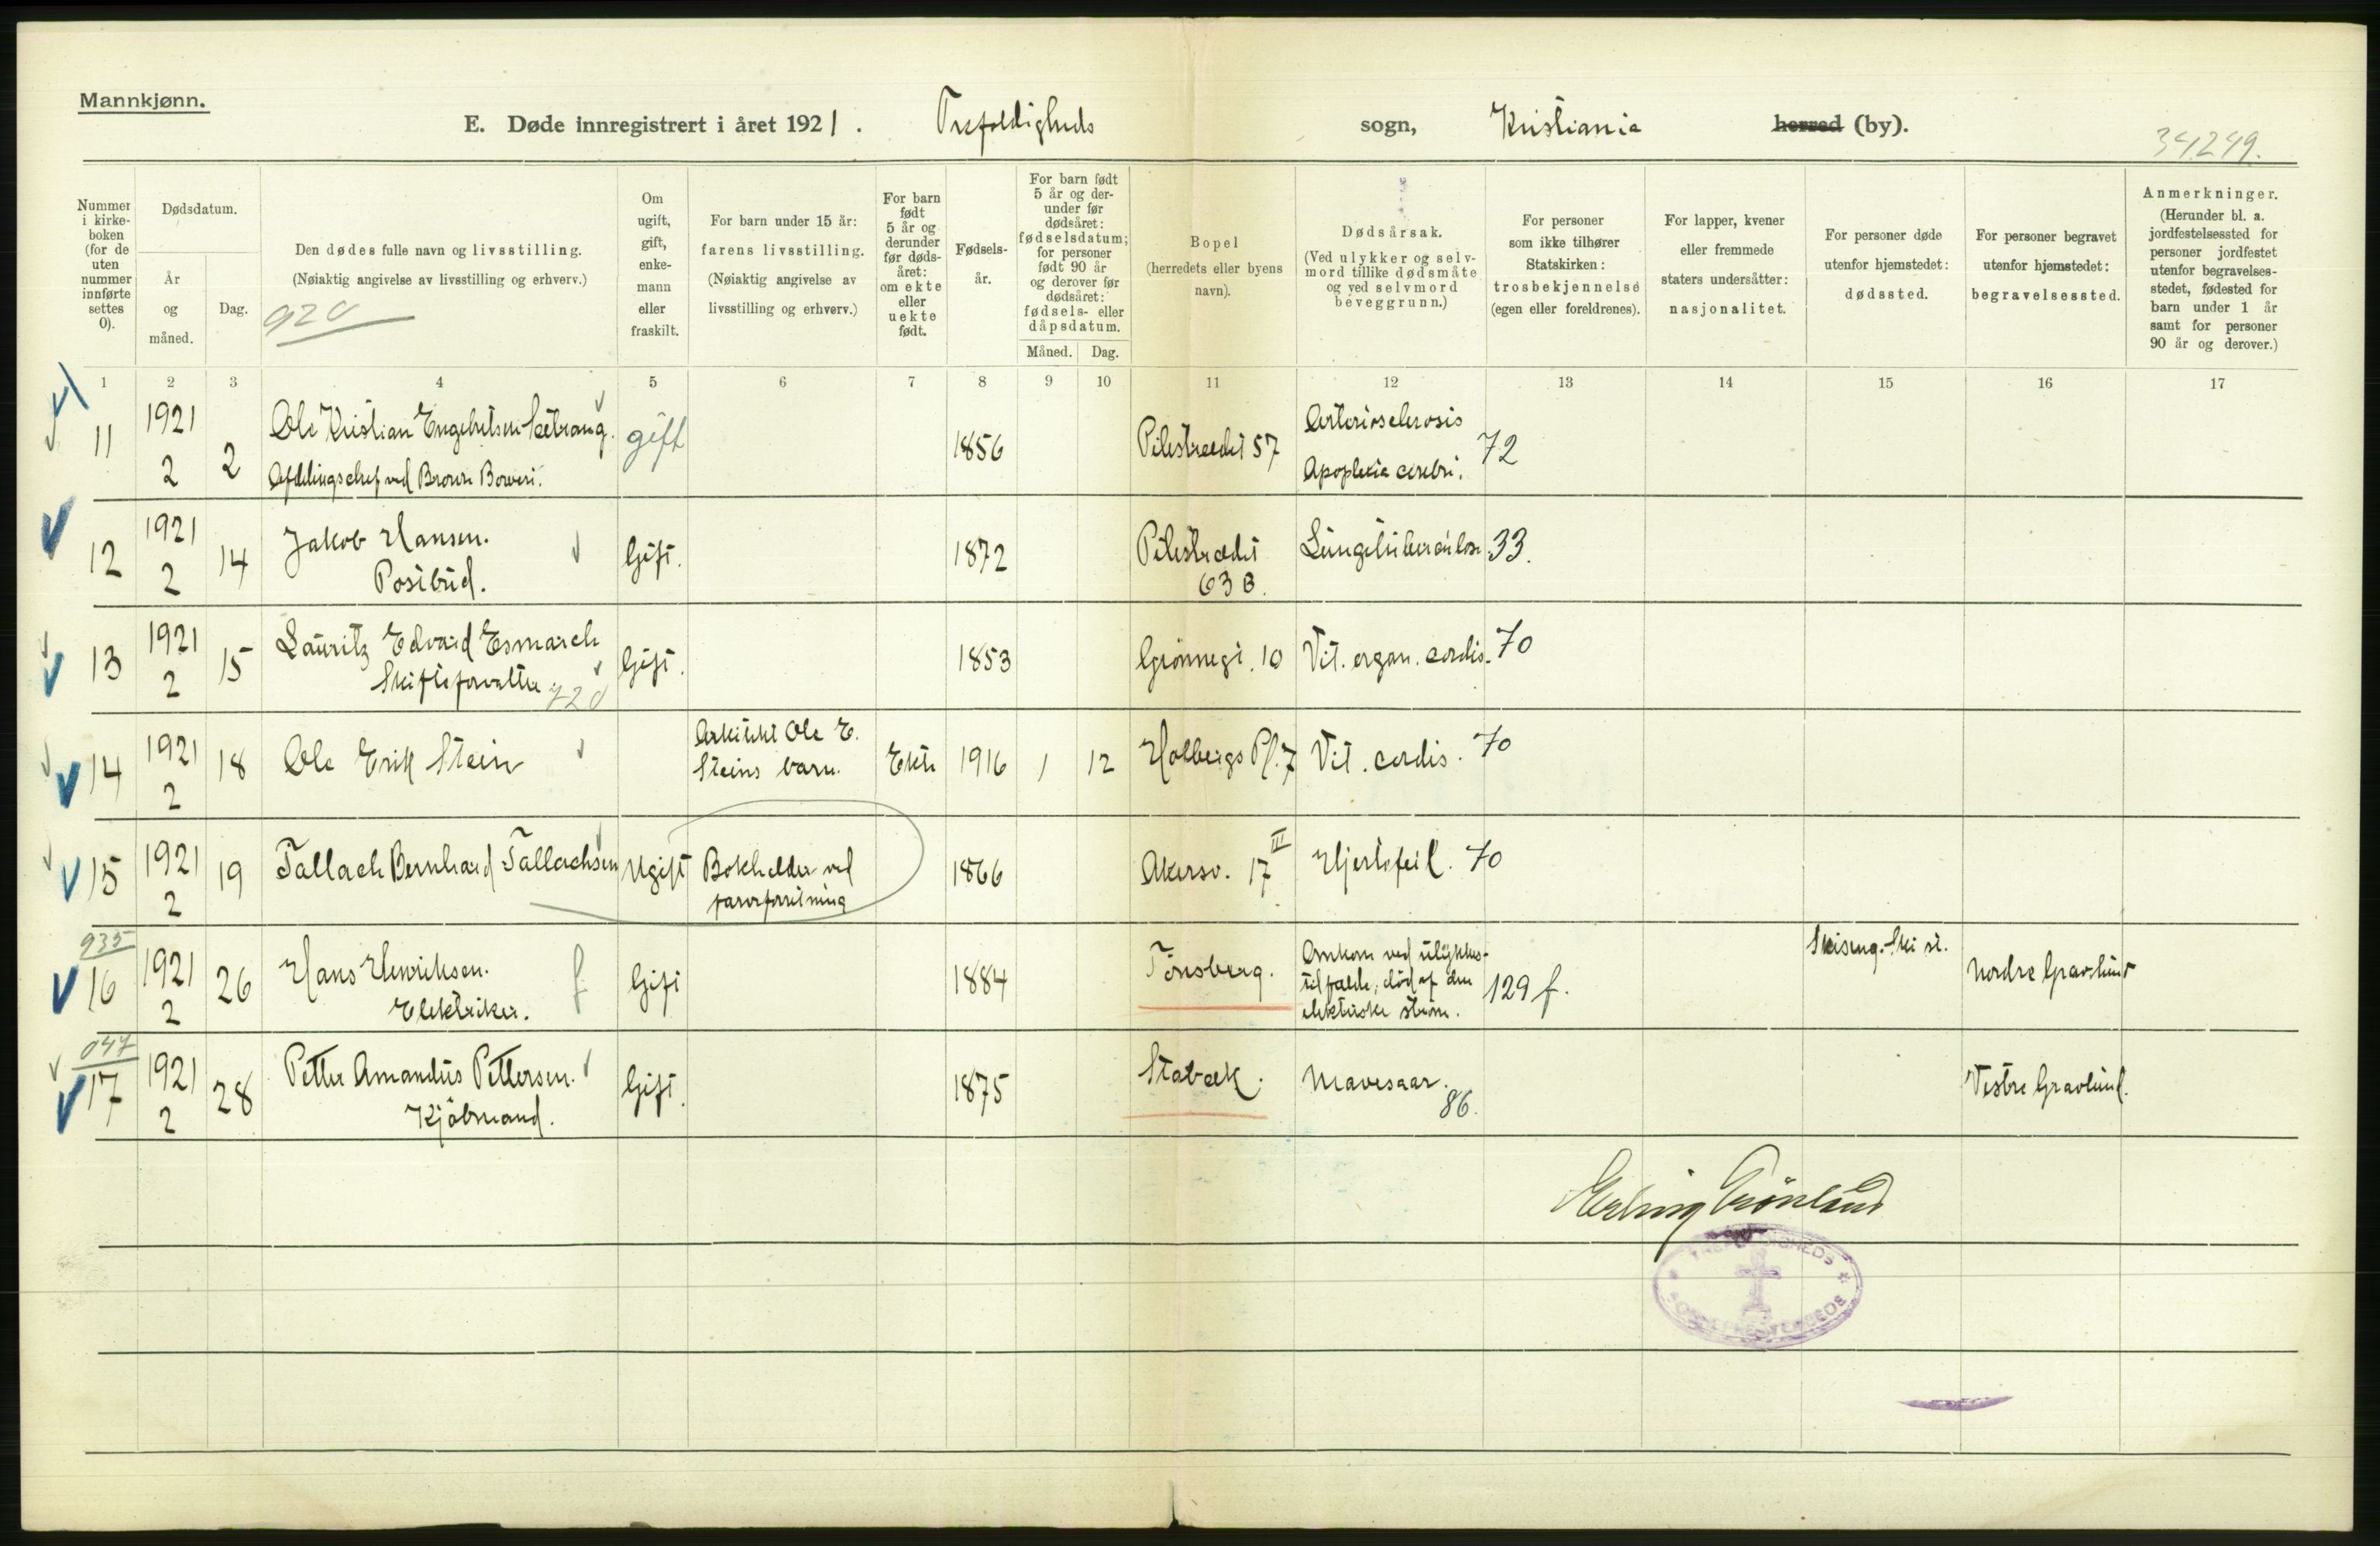 Mannkjønn.
E. Døde innregistrert i året 1921. Trefoldigheds sogn, Kristiania herred (by).
34249.
Nummer i kirke-boken (for de uten nummer innførte settes 0).
Dødsdatum.
År og måned.
Dag.
Den dødes fulle navn og livsstilling.
(Nøiaktig angivelse av livsstilling og erhverv.)
920
Om ugift, gift, enke-mann eller fraskilt.
For barn under 15 år:
farens livsstilling.
(Nøiaktig angivelse av livsstilling og erhverv.)
For barn født 5 år og derunder før døds-året: om ekte eller uekte født.
Fødsels-år.
For barn født 5 år og der-under før dødsåret: fødselsdatum; for personer født 90 år og derover før dødsåret: fødsels- eller dåpsdatum.
Måned. Dag.
Bopel
(herredets eller byens navn).
Dødsårsak.
(Ved ulykker og selv-mord tillike dødsmåte og ved selvmord beveggrunn.)
For personer som ikke tilhører Statskirken: trosbekjennelse (egen eller foreldrenes).
For lapper, kvener eller fremmede staters undersåtter: nasjonalitet.
For personer døde utenfor hjemstedet: dødssted.
For personer begravet utenfor hjemstedet: begravelsessted.
Anmerkninger.
(Herunder bl. a. jordfestelsessted for personer jordfestet utenfor begravelses-stedet, fødested for barn under 1 år samt for personer 90 år og derover.)
1 2 3 4 5 6 7 8 9 10 11 12 13 14 15 16 17
11 1921 2 2 Ole Kristian Engebretsen Sætrang.
Afdelingschef ved Brown Boveri.
gift 1856 Pilestrædet 57 Arteriosclerosis
Apoplexia cerebri. 72
12 1921 2 14 Jakob Hansen.
Postbud.
Gift. 1872 Pilestrædet
63 B. Lungetuberculose 33.
13 1921 2 15 Lauritz Edvard Esmarch
Skifteforvalter. 720
Gift. 1853 Grønnegt. 10 Vit. organ. cordis. 70
14 1921 2 18 Ole Erik Stein
Arkitekt Ole E.
Steins barn. Ekte 1916 1 12 Holbergs Pl. 7 Vit. cordis. 70
15 1921 2 19 Tallach Bernhard Tallachsen Ugift Bokholder ved
1866 Akersv. 17 III Hjertefeil. 70
935
16 1921 2 26 Hans Henriksen.
Elektriker. f
Gift 1884 Tønsberg. Omkom ved ulykkes-
tilfælde, død af den
elektriske strøm. 129 f. Skiseng. Ski st. Nordre Gravlund
047
17 1921 2 28 Petter Amandus Pettersen.
Kjøbmand.
Gift. 1875 Stabæk. Mavesaar.
86. Vestre Gravlund.
Erling Grønlund